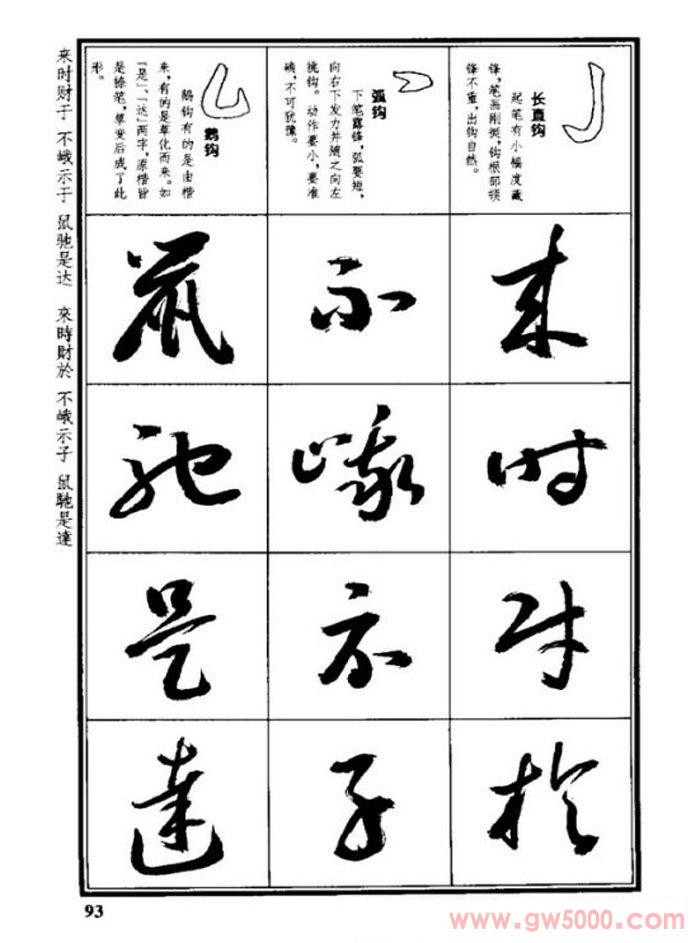 长直钩
起笔有小幅度藏
锋,笔画刚挺,钩根部顿
锋不重,出钩自然。
来
时
财
於
弧钩
下笔露锋,弧要短,
向右下发力并随之向左
挑钩。动作要小,要准
确,不可犹豫。
不
峨
示
子
鹅钩
鹅钩有的是由楷
来,有的是草化而来。如
“是”、“达”两字,原楷皆
是捺笔,草变后成了此
形。
鼠
驰
是
達
来时财于 不峨示子 鼠驰是达 來時財於 不峨示子 鼠馳是達
93
www.gw5000.com